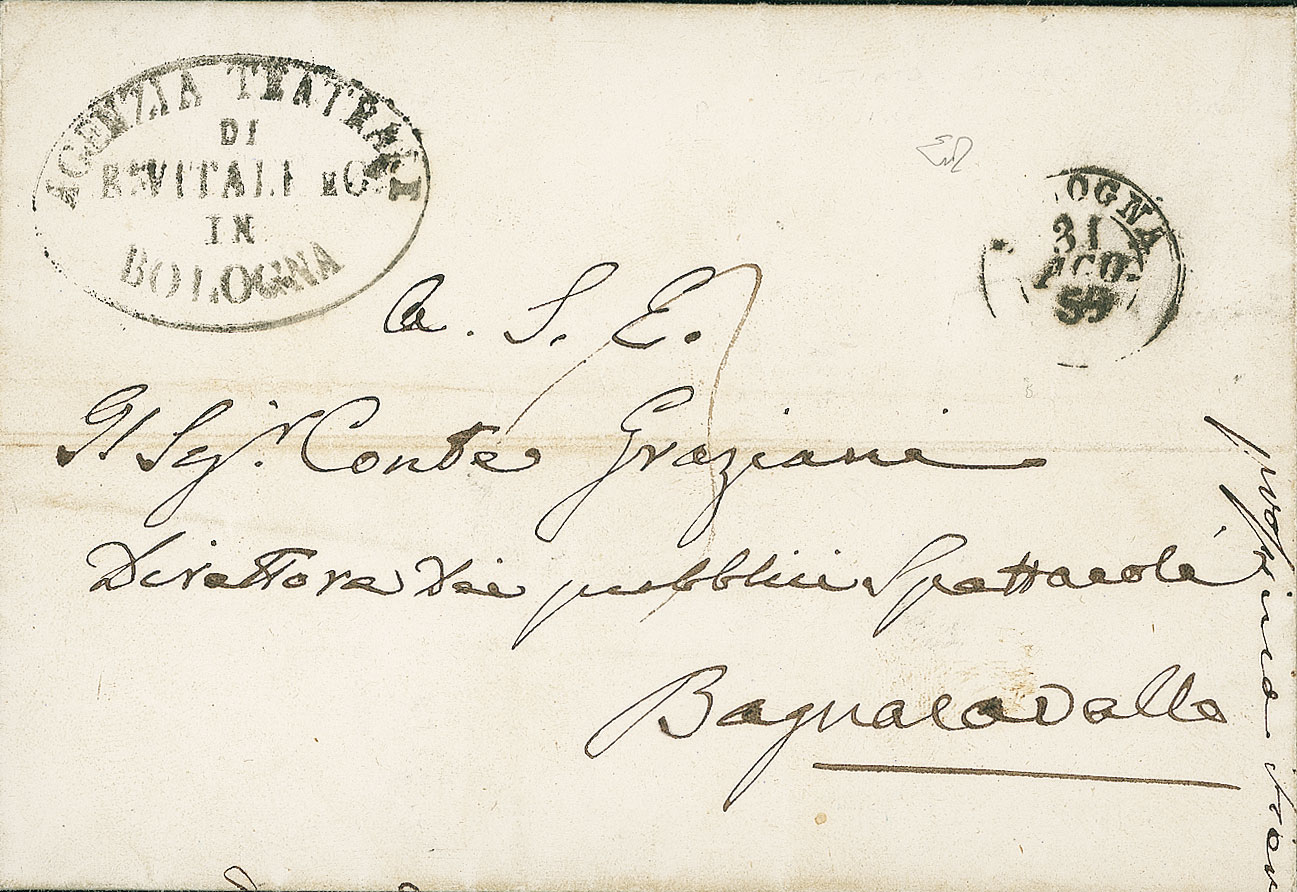 AGENZIA TEATRALI
DI
VITALI
IN
BOLOGNA
OGNA
31
AGO.
59
A. S. E.
Il Sig.r Conte Graziani
Direttore Dei pubblici Spettacoli
Bagnacavallo